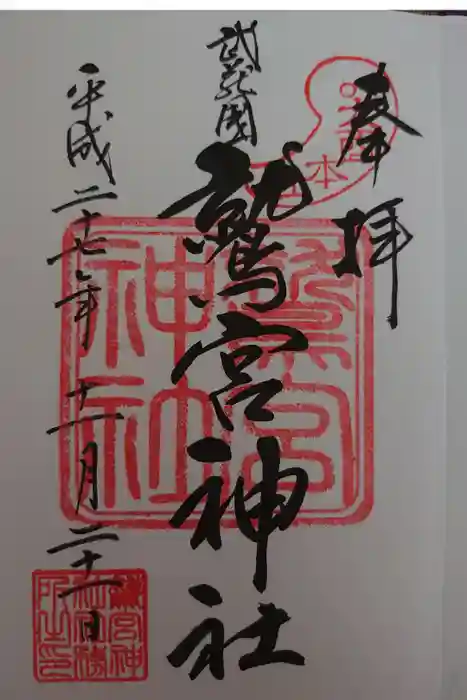 奉拝
武蔵国
鷲宮神社
平成二十七年十一月二十一日
鷲宮
神社
鷲宮神
社社務
所之印